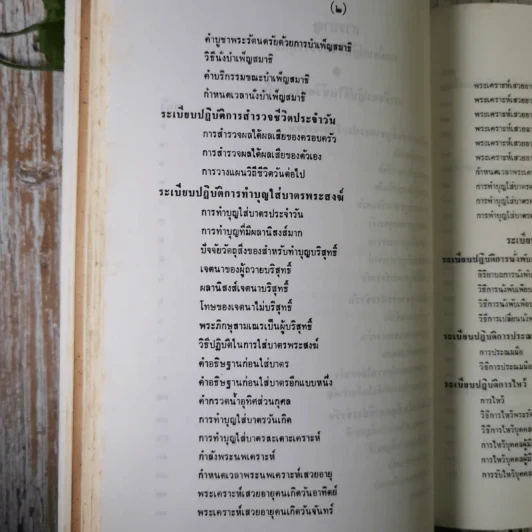 (๒)
คำบูชาพระรัตนตรัยด้วยการบำเพ็ญสมาธิ
วิธีนั่งบำเพ็ญสมาธิ
คำบริกรรมขณะบำเพ็ญสมาธิ
กำหนดเวลานั่งบำเพ็ญสมาธิ
ระเบียบปฏิบัติการสำรวจชีวิตประจำวัน
การสำรวจผลได้ผลเสียของครอบครัว
การสำรวจผลได้ผลเสียของตัวเอง
การวางแผนวิถีชีวิตวันต่อไป
ระเบียบปฏิบัติการทำบุญใส่บาตรพระสงฆ์
การทำบุญใส่บาตรประจำวัน
การทำบุญที่มีผลานิสงส์มาก
ปัจจัยวัตถุสิ่งของสำหรับทำบุญบริสุทธิ์
เจตนาของผู้ถวายบริสุทธิ์
ผลานิสงส์เจตนาบริสุทธิ์
โทษของเจตนาไม่บริสุทธิ์
พระภิกษุสามเณรเป็นผู้บริสุทธิ์
วิธีปฏิบัติในการใส่บาตรพระสงฆ์
คำอธิษฐานก่อนใส่บาตร
คำอธิษฐานก่อนใส่บาตรอีกแบบหนึ่ง
คำกรวดน้ำอุทิศส่วนกุศล
การทำบุญใส่บาตรวันเกิด
การทำบุญใส่บาตรสะเดาะเคราะห์
กำลังพระนพเคราะห์
กำหนดเวลาพระนพเคราะห์เสวยอายุ
พระเคราะห์เสวยอายุคนเกิดวันอาทิตย์
พระเคราะห์เสวยอายุคนเกิดวันจันทร์
พระเคราะห์เสวยอายุ
พระเคราะห์เสวยอายุ
พระเคราะห์เสวยอายุ
พระเคราะห์เสวยอายุ
พระเคราะห์เสวยอายุ
พระเคราะห์เสวยอายุ
กำหนดเวลาพระเคราะห์
การทำบุญใส่บาตร
การทำบุญใส่บาตร
การทำบุญใส่บาตร
ระเบียบปฏิบัติการนั่งพับเพียบ
วิธีการนั่งพับเพียบ
วิธีการนั่งพับเพียบ
วิธีการเปลี่ยนนั่งพับ
ระเบียบปฏิบัติการประณมมือ
การประณมมือ
วิธีการประณมมือ
ระเบียบปฏิบัติการไหว้
การไหว้
วิธีการไหว้พระรัตน
วิธีการไหว้บุคคล
การไหว้บุคคลผู้มี
การไหว้บุคคลผู้มี
การรับไหว้บุคคล